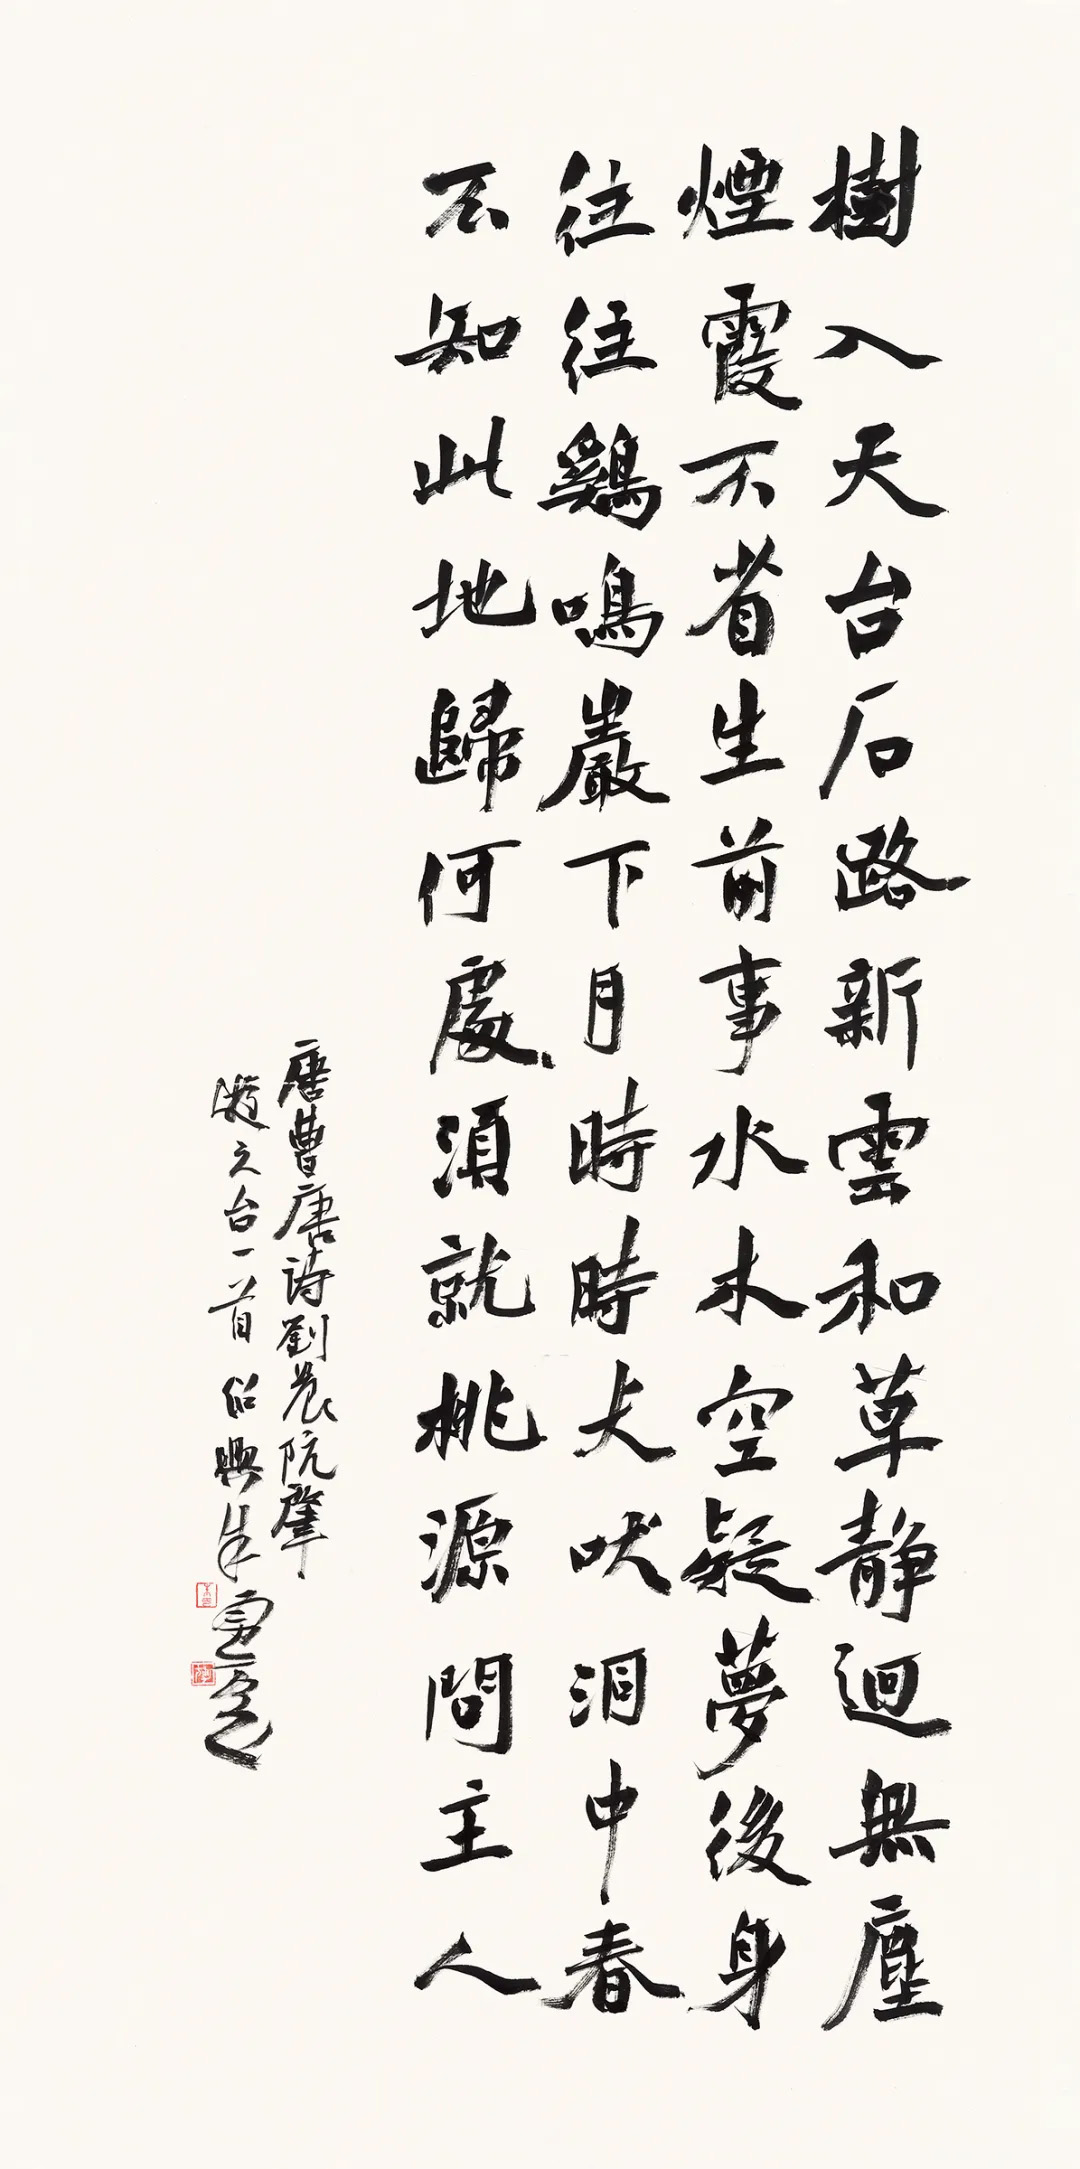 樹入天台石路新雲和草静迥無塵
煙霞不省生前事水木空疑夢後身
往往鷄鳴巖下月時時犬吠洞中春
不知此地歸何處須就桃源問主人
唐曹唐詩劉晨阮肇
遊天台一首紹興朱勇